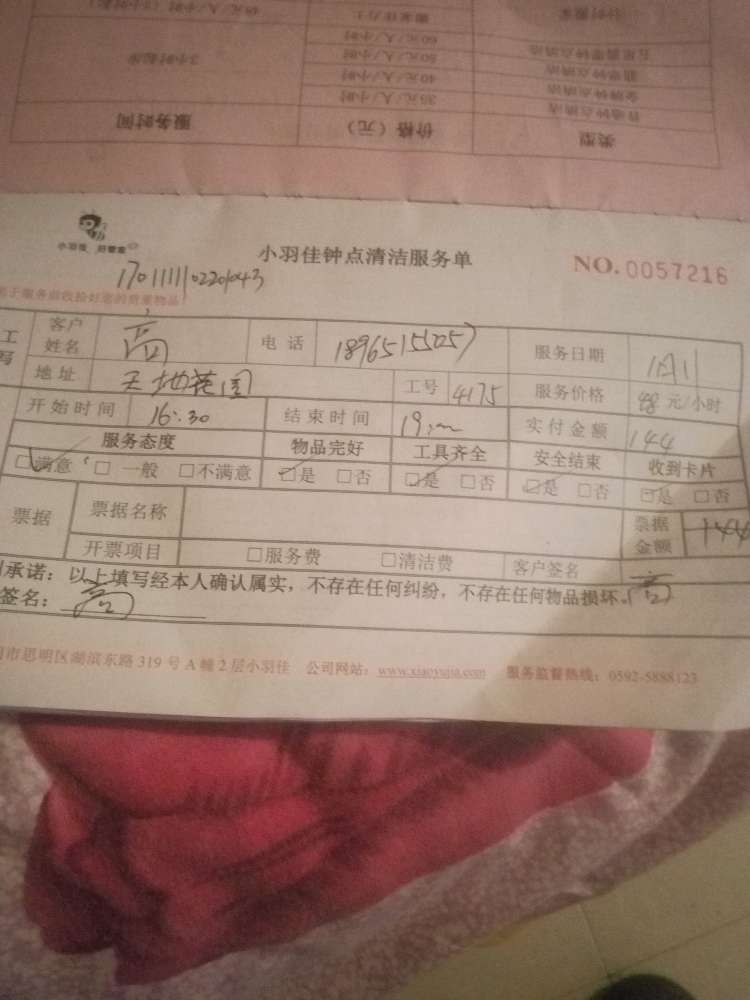 类型 价格（元） 服务时间
普通钟点清洁 35元/人/小时 3小时起步
金牌钟点清洁 40元/人/小时
翡翠钟点清洁 50元/人/小时
五星翡翠钟点清洁 60元/人/小时
小羽佳 好管家
小羽佳钟点清洁服务单
NO.0057216
1701111102201043
工
写
客户
姓名
高
电话
服务日期
1月11
地址
天地花园
工号
4175
服务价格
48 元/小时
开始时间
16:30
结束时间
19:
实付金额
144
服务态度
物品完好
工具齐全
安全结束
收到卡片
□满意 □一般 □不满意
□是 □否
□是 □否
□是 □否
□是 □否
票据
票据名称
票据
金额
144
开票项目
□服务费 □清洁费
客户签名
高
承诺：以上填写经本人确认属实，不存在任何纠纷，不存在任何物品损坏。
签名：高
市思明区湖滨东路 319 号 A 幢 2 层小羽佳 公司网站：www.xiaoyujia.com 服务监督热线：0592-5888123